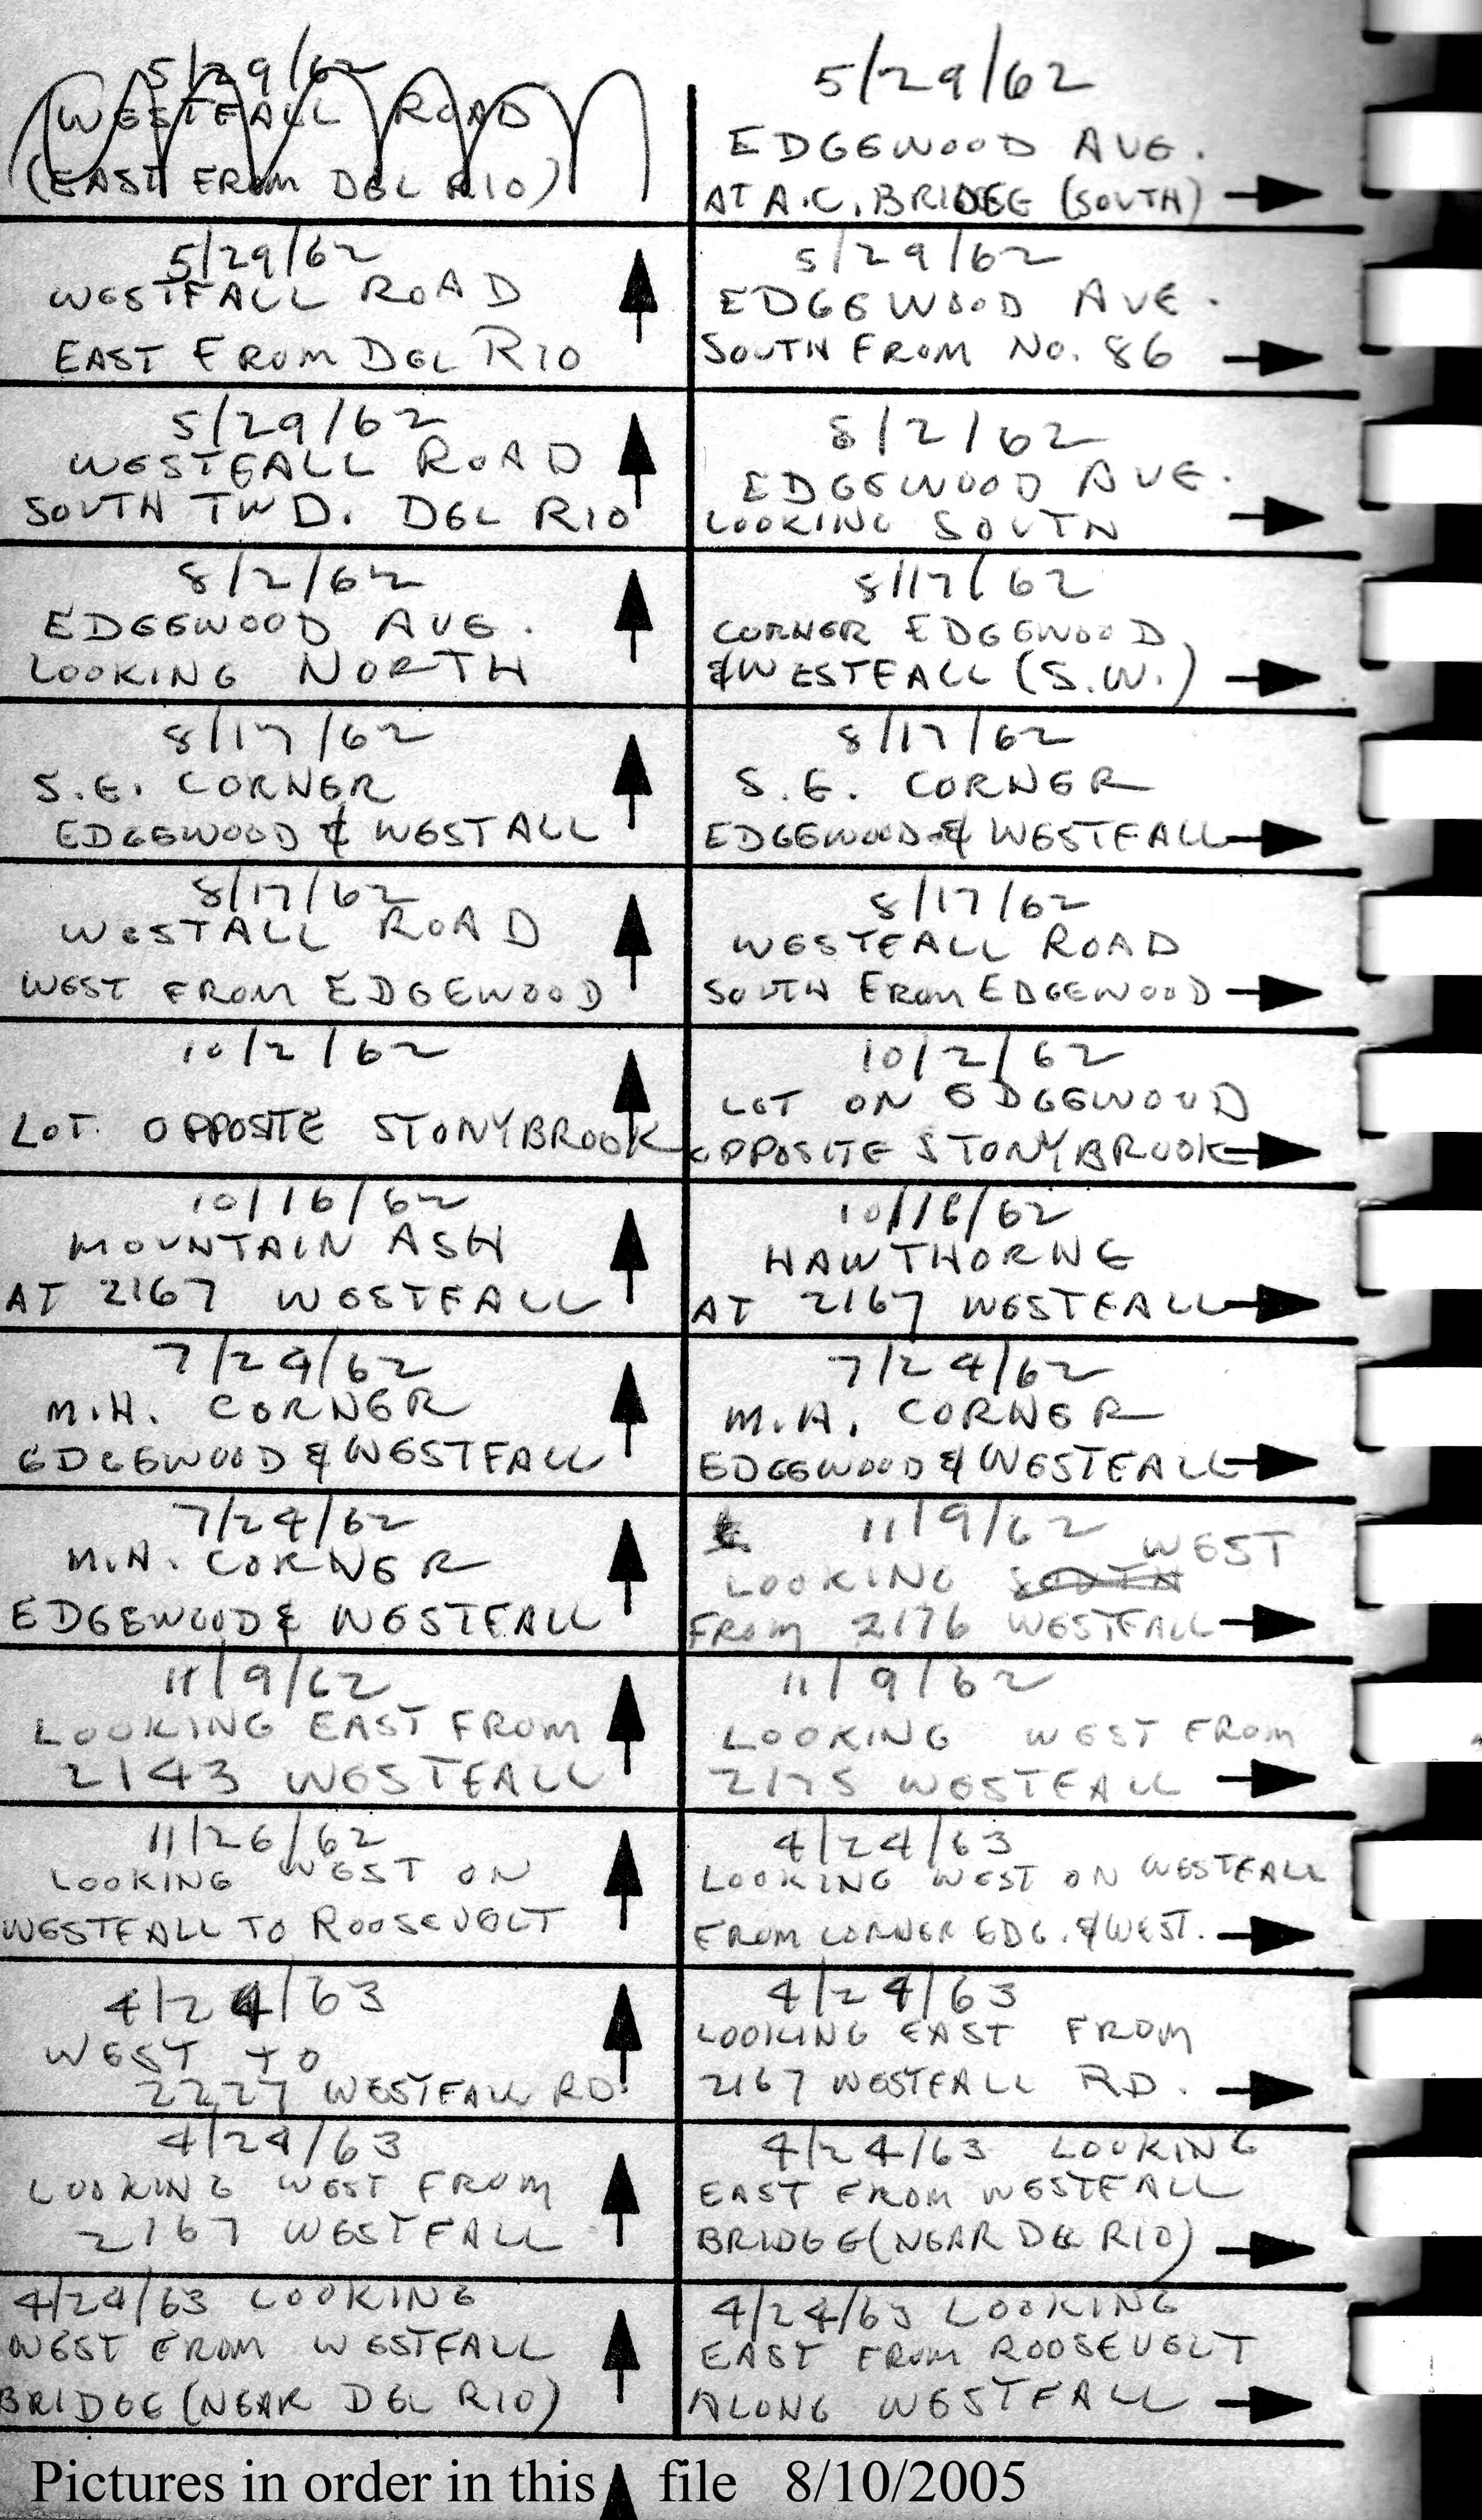 5/29/62
WESTFALL ROAD
(EAST FROM DEL RIO)
5/29/62
EDGEWOOD AVE.
AT A.C. BRIDGE (SOUTH)
5/29/62
WESTFALL ROAD
EAST FROM DEL RIO
5/29/62
EDGEWOOD AVE.
SOUTH FROM NO. 86
5/29/62
WESTFALL ROAD
SOUTH TWD. DEL RIO
8/2/62
EDGEWOOD AVE.
LOOKING SOUTH
8/2/62
EDGEWOOD AVE.
LOOKING NORTH
8/17/62
CORNER EDGEWOOD
& WESTFALL (S.W.)
8/17/62
S.E. CORNER
EDGEWOOD & WESTALL
8/17/62
S.E. CORNER
EDGEWOOD & WESTFALL
8/17/62
WESTALL ROAD
WEST FROM EDGEWOOD
8/17/62
WESTFALL ROAD
SOUTH FROM EDGEWOOD
10/2/62
LOT OPPOSITE STONYBROOK
10/2/62
LOT ON EDGEWOOD
OPPOSITE STONYBROOK
10/16/62
MOUNTAIN ASH
AT 2167 WESTFALL
10/16/62
HAWTHORNE
AT 2167 WESTFALL
7/24/62
M.H. CORNER
EDGEWOOD & WESTFALL
7/24/62
M.H. CORNER
EDGEWOOD & WESTFALL
7/24/62
M.H. CORNER
EDGEWOOD & WESTFALL
11/9/62
LOOKING SOUTH WEST
FROM 2176 WESTFALL
11/9/62
LOOKING EAST FROM
2143 WESTFALL
11/9/62
LOOKING WEST FROM
2175 WESTFALL
11/26/62
LOOKING WEST ON
WESTFALL TO ROOSEVELT
4/24/63
LOOKING WEST ON WESTFALL
FROM CORNER EDG. & WEST.
4/24/63
WEST TO
2227 WESTFALL RD.
4/24/63
LOOKING EAST FROM
2167 WESTFALL RD.
4/24/63
LOOKING WEST FROM
2167 WESTFALL
4/24/63 LOOKING
EAST FROM WESTFALL
BRIDGE (NEAR DEL RIO)
4/24/63 LOOKING
WEST FROM WESTFALL
BRIDGE (NEAR DEL RIO)
4/24/63 LOOKING
EAST FROM ROOSEVELT
ALONG WESTFALL
Pictures in order in this file 8/10/2005